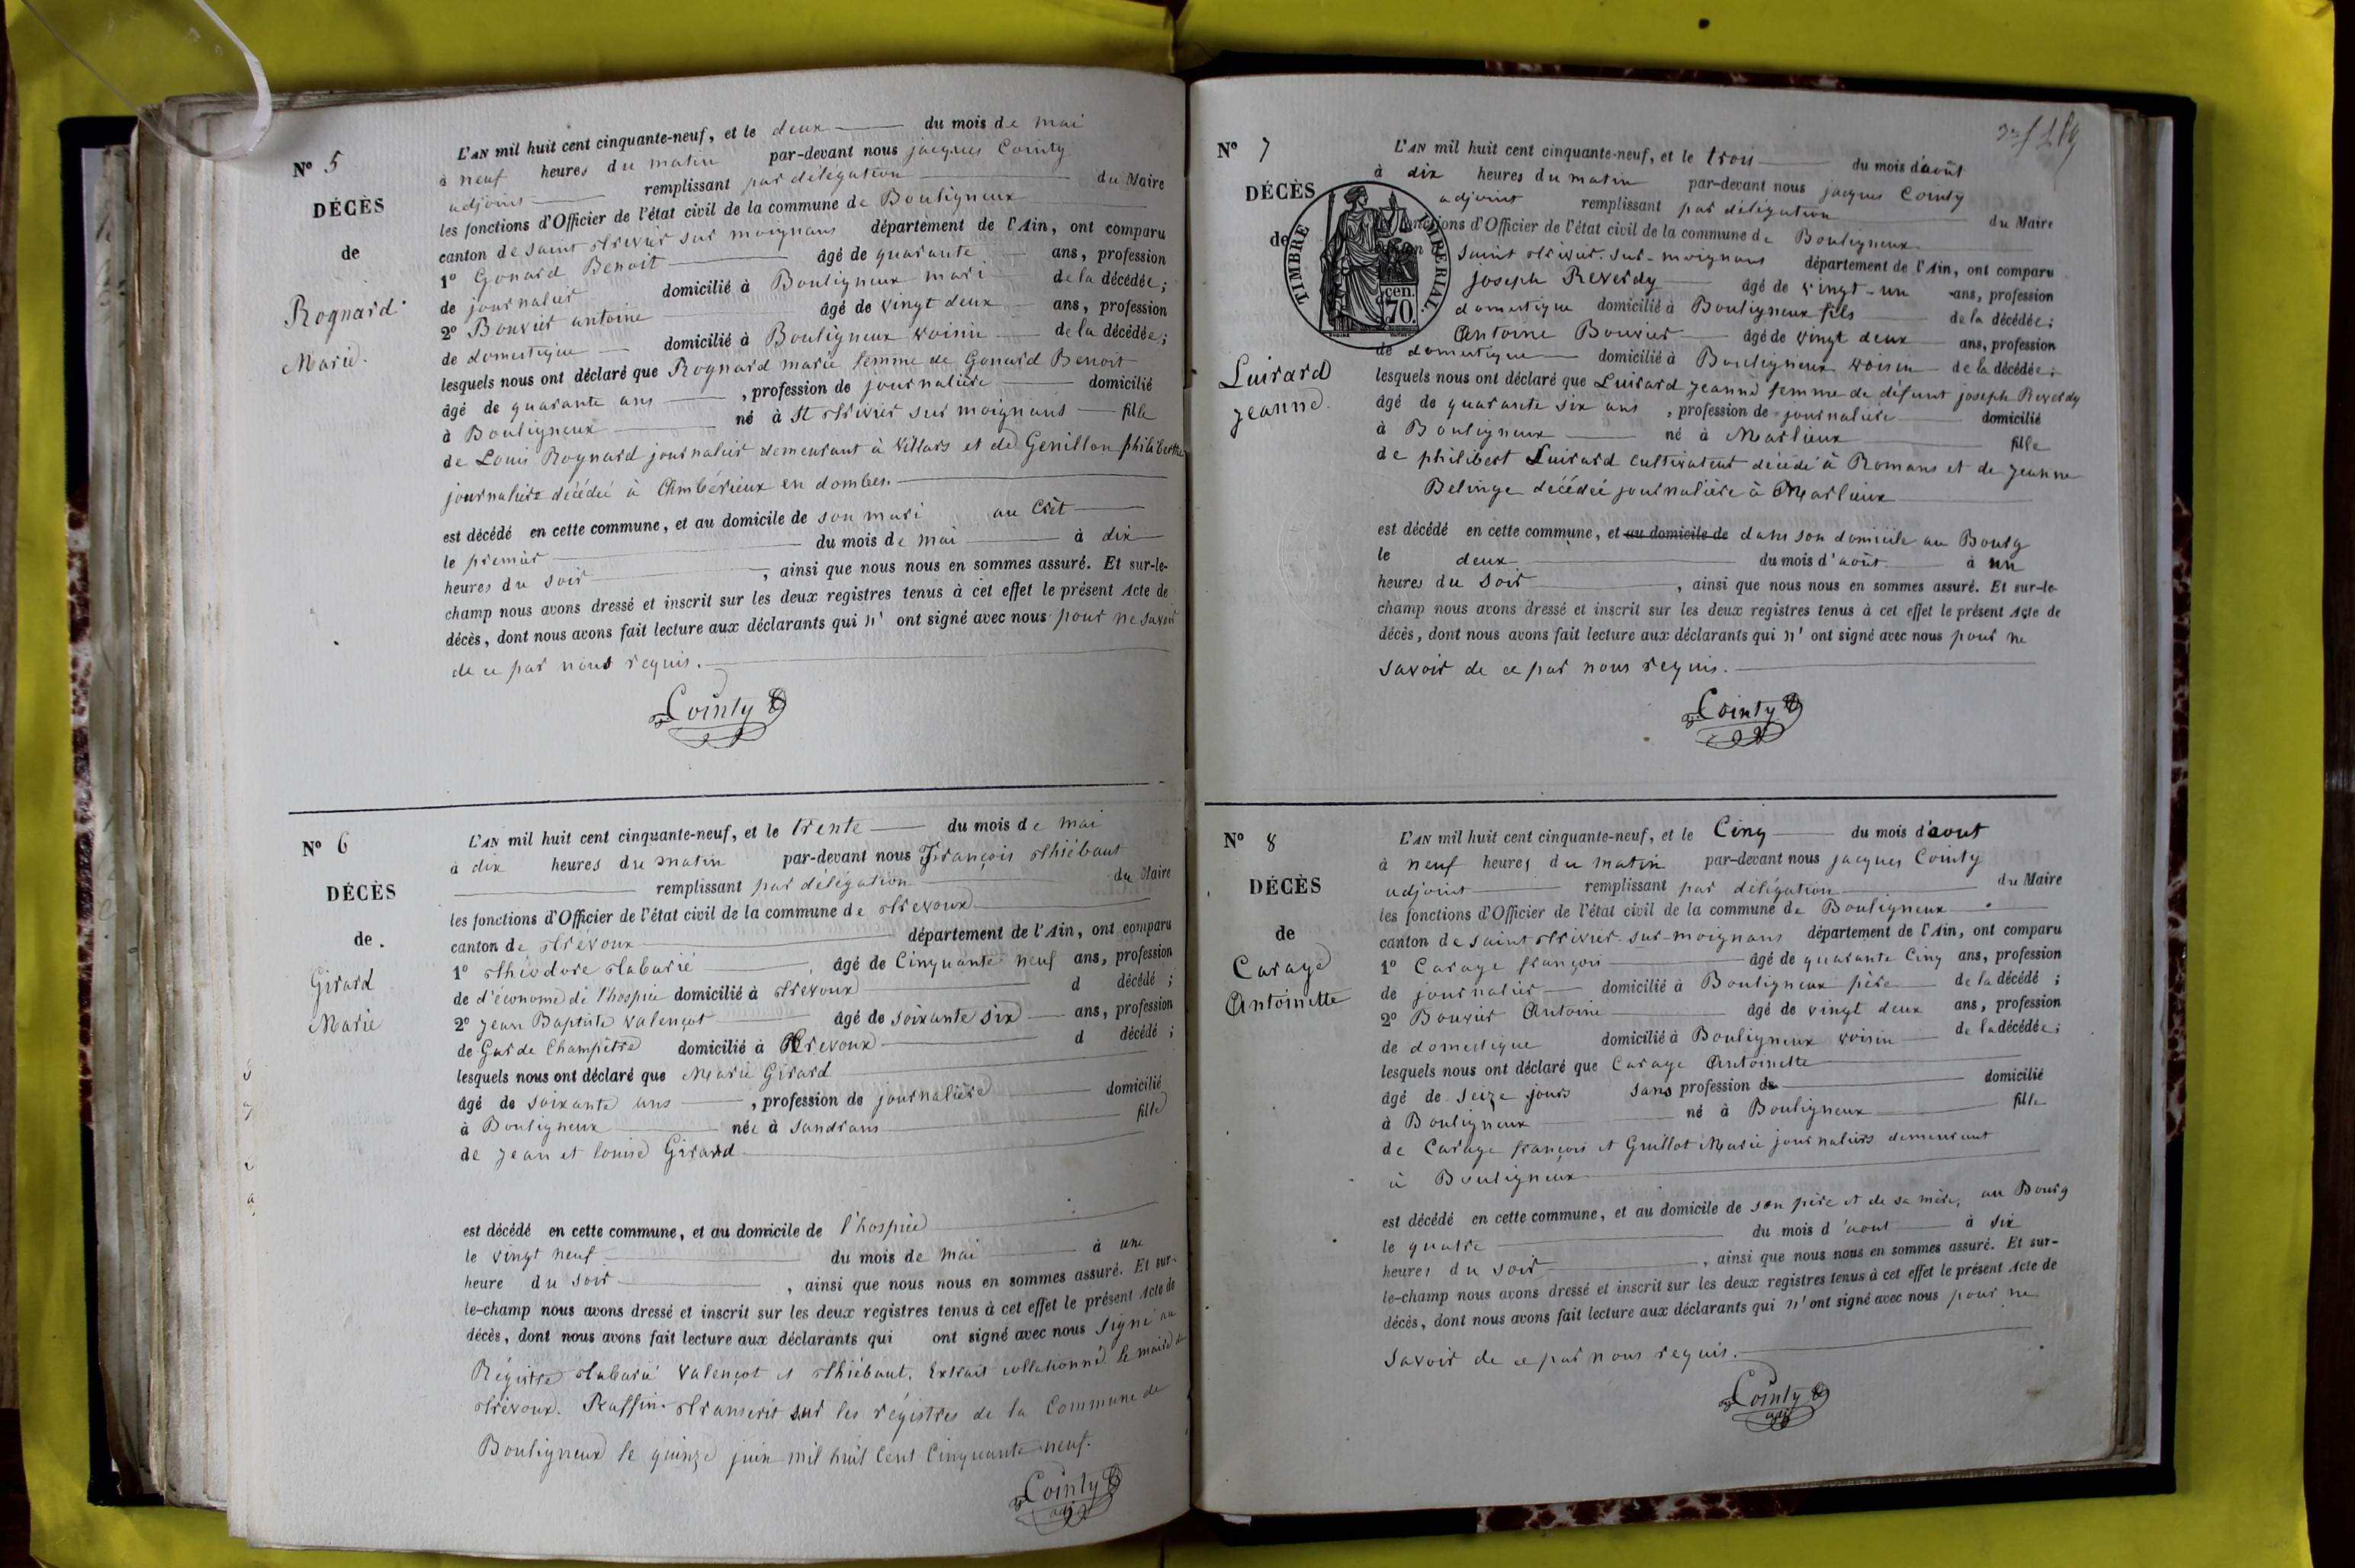 N° 5
DÉCÈS
de
Rognard
Marie.
L'AN mil huit cent cinquante-neuf, et le deux du mois de mai
à neuf heures du matin par-devant nous jacques Cointy
adjoint remplissant par délégation du Maire
les fonctions d'Officier de l'état civil de la commune de Bouligneux
canton de saint trivier sur moignans département de l'Ain, ont comparu
1° Gonard Benoit âgé de quarante ans, profession
de journalier domicilié à Bouligneux mari de la décédée;
2° Bouvier antoine âgé de vingt deux ans, profession
de domestique domicilié à Bouligneux voisin de la décédée;
lesquels nous ont déclaré que Rognard marie femme de Gonard Benoit
âgé de quarante ans, profession de journalière domicilié
à Bouligneux né à St trivier sur moignans fille
de Louis Rognard journalier demeurant à Villars et de Genillon philiberthe
journalière décédée à Ambérieux en dombes.
est décédé en cette commune, et au domicile de son mari au Crêt
le premier du mois de mai à dix
heures du soir, ainsi que nous nous en sommes assuré. Et sur-le-
champ nous avons dressé et inscrit sur les deux registres tenus à cet effet le présent Acte de
décès, dont nous avons fait lecture aux déclarants qui n' ont signé avec nous pour ne savoir
de ce par nous requis.
Cointy
N° 6
DÉCÈS
de
Girard
Marie
L'AN mil huit cent cinquante-neuf, et le trente du mois de mai
à dix heures du matin par-devant nous François thiébaut
remplissant par délégation du Maire
les fonctions d'Officier de l'état civil de la commune de trevoux
canton de trévoux département de l'Ain, ont comparu
1° théodore tabarié âgé de Cinquante neuf ans, profession
de d'économe de l'hospice domicilié à trevoux d décédé ;
2° jean Baptiste Valençot âgé de soixante six ans, profession
de Garde Champêtre domicilié à trevoux d décédé ;
lesquels nous ont déclaré que Marie Girard
âgé de soixante ans, profession de journalière domicilié
à Bouligneux née à Sandrans fille
de jean et louise Girard
est décédé en cette commune, et au domicile de l'hospice
le vingt neuf du mois de mai à une
heure du soir, ainsi que nous nous en sommes assuré. Et sur-
le-champ nous avons dressé et inscrit sur les deux registres tenus à cet effet le présent Acte de
décès, dont nous avons fait lecture aux déclarants qui ont signé avec nous signé au
Régistre tabarié Valençot et thiébaut. Extrait collationné le maire de
trévoux. Raffin. transcrit sur les régistres de la Commune de
Bouligneux le quinze juin mil huit cent Cinquante neuf.
Cointy
adj
N° 7
DÉCÈS
de
Luirard
jeanne.
TIMBRE IMPERIAL
70 cen.
L'AN mil huit cent cinquante-neuf, et le trois du mois d'août
à dix heures du matin par-devant nous jacques Cointy
adjoint remplissant par délégation du Maire
fonctions d'Officier de l'état civil de la commune de Bouligneux
saint trivier-sur-moignans département de l'Ain, ont comparu
joseph Reverdy âgé de vingt-un ans, profession
domestique domicilié à Bouligneux fils de la décédée;
Antoine Bouvier âgé de vingt deux ans, profession
de domestique domicilié à Bouligneux voisin de la décédée;
lesquels nous ont déclaré que Luirard jeanne femme de défunt joseph Reverdy
âgé de quarante six ans, profession de journalière domicilié
à Bouligneux né à Marlieux fille
de philibert Luirard cultivateur décédé à Romans et de jeanne
Belinge décédée journalière à Marlieux
est décédé en cette commune, et au domicile de dans son domicile au Bourg
le deux du mois d'août à un
heures du soir, ainsi que nous nous en sommes assuré. Et sur-le-
champ nous avons dressé et inscrit sur les deux registres tenus à cet effet le présent Acte de
décès, dont nous avons fait lecture aux déclarants qui n' ont signé avec nous pour ne
savoir de ce par nous requis.
Cointy
N° 8
DÉCÈS
de
Carage
Antoinette
L'AN mil huit cent cinquante-neuf, et le Cinq du mois d'aout
à neuf heures du matin par-devant nous jacques Cointy
adjoint remplissant par délégation du Maire
les fonctions d'Officier de l'état civil de la commune de Bouligneux
canton de saint trivier-sur-moignans département de l'Ain, ont comparu
1° Carage françois âgé de quarante Cinq ans, profession
de journalier domicilié à Bouligneux père de la décédé ;
2° Bouvier Antoine âgé de vingt deux ans, profession
de domestique domicilié à Bouligneux voisin de la décédée;
lesquels nous ont déclaré que Carage Antoinette
âgé de seize jours sans profession de domicilié
à Bouligneux né à Bouligneux fille
de Carage françois et Guillot Marie journaliers demeurant
à Bouligneux
est décédé en cette commune, et au domicile de son père et de sa mère, au Bourg
le quatre du mois d'aout à six
heures du soir, ainsi que nous nous en sommes assuré. Et sur-
le-champ nous avons dressé et inscrit sur les deux registres tenus à cet effet le présent Acte de
décès, dont nous avons fait lecture aux déclarants qui n' ont signé avec nous pour ne
savoir de ce par nous requis.
Cointy
adj